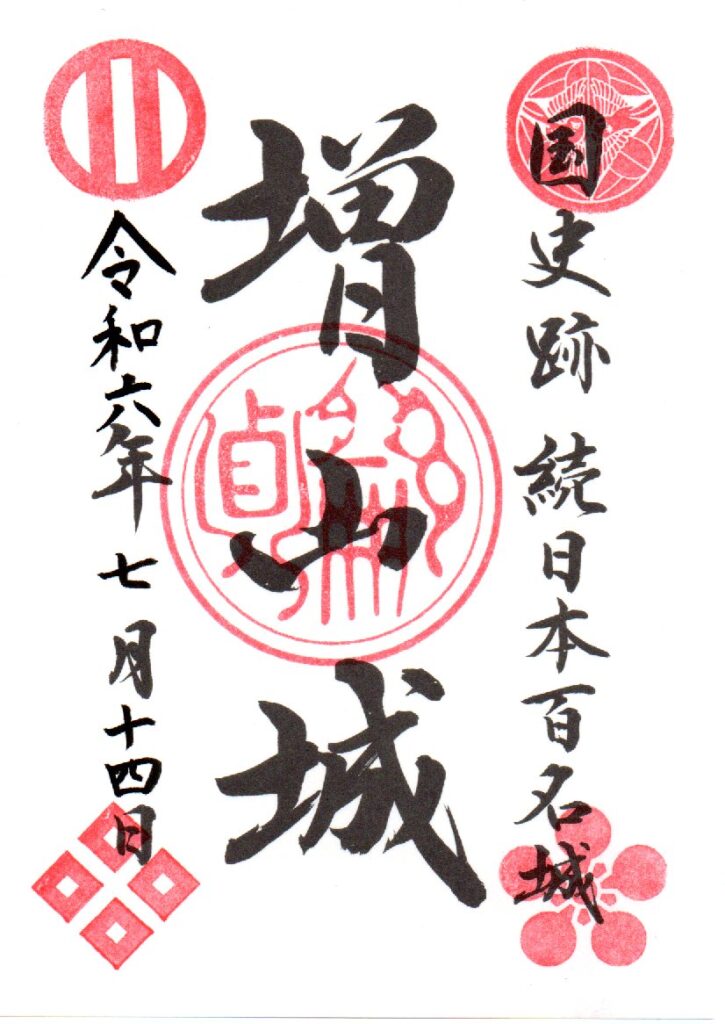 国史跡 続日本百名城
増山城
令和六年 七月十四日